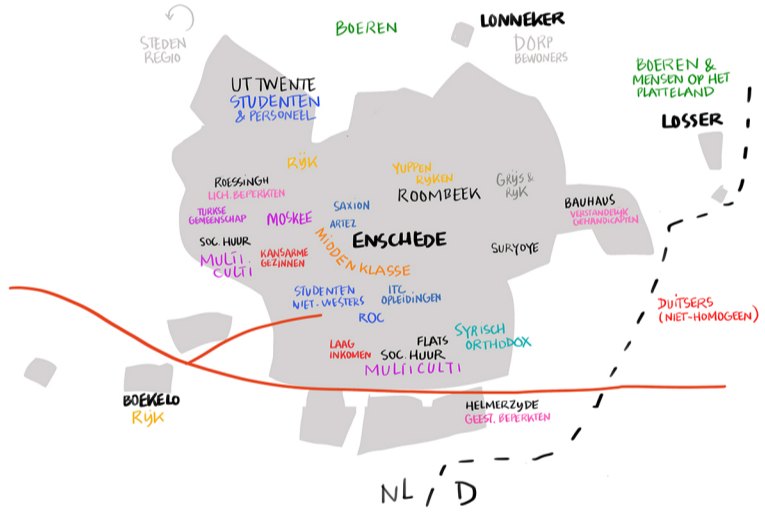 BOEREN
LONNEKER
DORP
BEWONERS
STEDEN
REGIO
BOEREN &
MENSEN OP HET
PLATTELAND
LOSSER
UT TWENTE
STUDENTEN
& PERSONEEL
RIJK
YUPPEN
RIJKEN
ROOMBEEK
GRIJS &
RIJK
ROESSINGH
LICH. BEPERKTEN
TURKSE
GEMEENSCHAP
MOSKEE
SAXION
ARTEZ
BAUHAUS
VERSTANDELIJK
GEHANDICAPTEN
SOC. HUUR
MULTI
CULTI
KANSARME
GEZINNEN
MIDDEN KLASSE
ENSCHEDE
SURYOYE
STUDENTEN
NIET-WESTERS
ITC
OPLEIDINGEN
ROC
DUITSERS
(NIET-HOMOGEEN)
LAAG
INKOMEN
FLATS
SOC. HUUR
MULTICULTI
SYRISCH
ORTHODOX
BOEKELO
RIJK
HELMERZYDE
GEEST. BEPERKTEN
NL / D